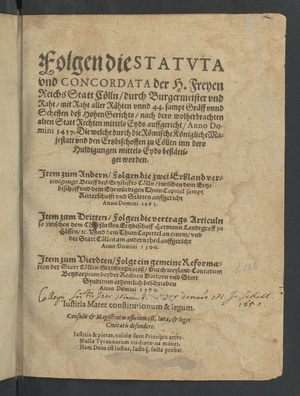 Folgen die STATVTA
vnd CONCORDATA der H. Freyen
Reichs Statt Cölln / durch Burgermeister vnd
Raht / mit Raht aller Rähten vnnd 44. sampt Gräff vnnd
Scheffen deß Hohen Gerichts / nach dero wolherbrachten
alten Statt Rechten mittels Eyds auffgericht / Anno Do-
mini 1437. Die welche durch die Römische Königliche Ma-
jestatt vnd den Ertzbischoffen zu Cölln inn dero
Huldigungen mittels Eyds bestätti-
get worden.
Item zum Andern / Folgen die zwei Erbland ver-
einigungs Brieff deß Ertzstiffts Cölln / zwischen dem Ertz-
bischoff vnd dem Ehrwürdigen Thum Capitel sampt
Ritterschafft vnd Stätten auffgericht
Anno Domini
Item zum Dritten / Folgen die vertrags Articuln
so zwischen dem Ertzbischoff Hermann Landgraff zu
Hessen / etc. Vnnd dem Thum Capitel an einem / vnd
der Statt Cölln am andern theil auffgericht
Anno Domini 1506.
Item zum Vierdten / Folgt ein gemeine Reforma-
tion der Statt Cölln
beyder Rechten Doctorn vnd Statt
Syndicum
Anno Domini 1570.
Iustitia Mater constitutionum & legum.
Consulis & Magistratus officium est, iura, & leges
Civitatis defendere.
Iustitia & pietas, validae sunt Principis arces.
Nulla Tyrannorum vis diuturna manet.
Nam Deus est iustus, iustaq; facta probat.